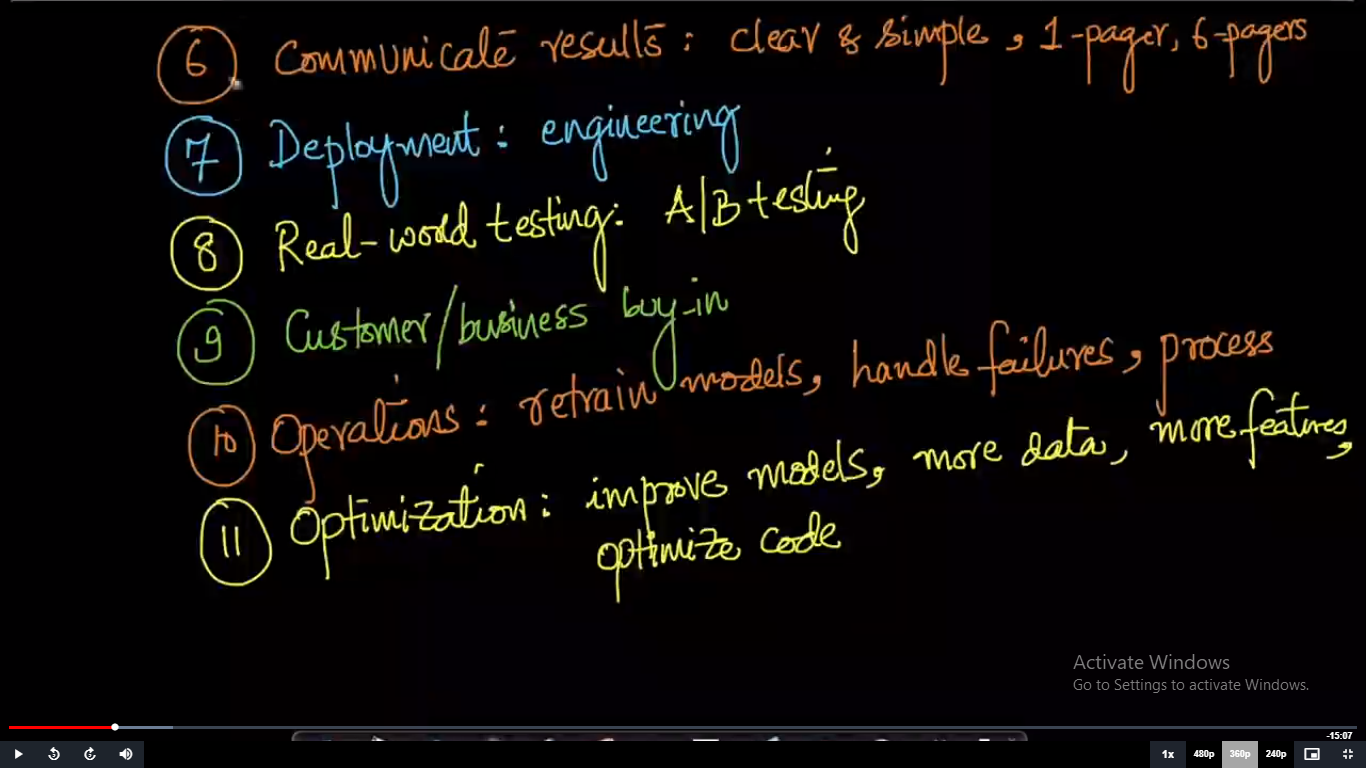 6 Communicate results : clear & simple , 1-pager, 6-pagers
7 Deployment : engineering
8 Real-world testing : A/B testing
9 Customer/business buy-in
10 Operations : retrain models, handle failures, process
11 Optimization : improve models, more data, more features,
optimize code
Activate Windows
Go to Settings to activate Windows.
-15:07
1x 480p 360p 240p